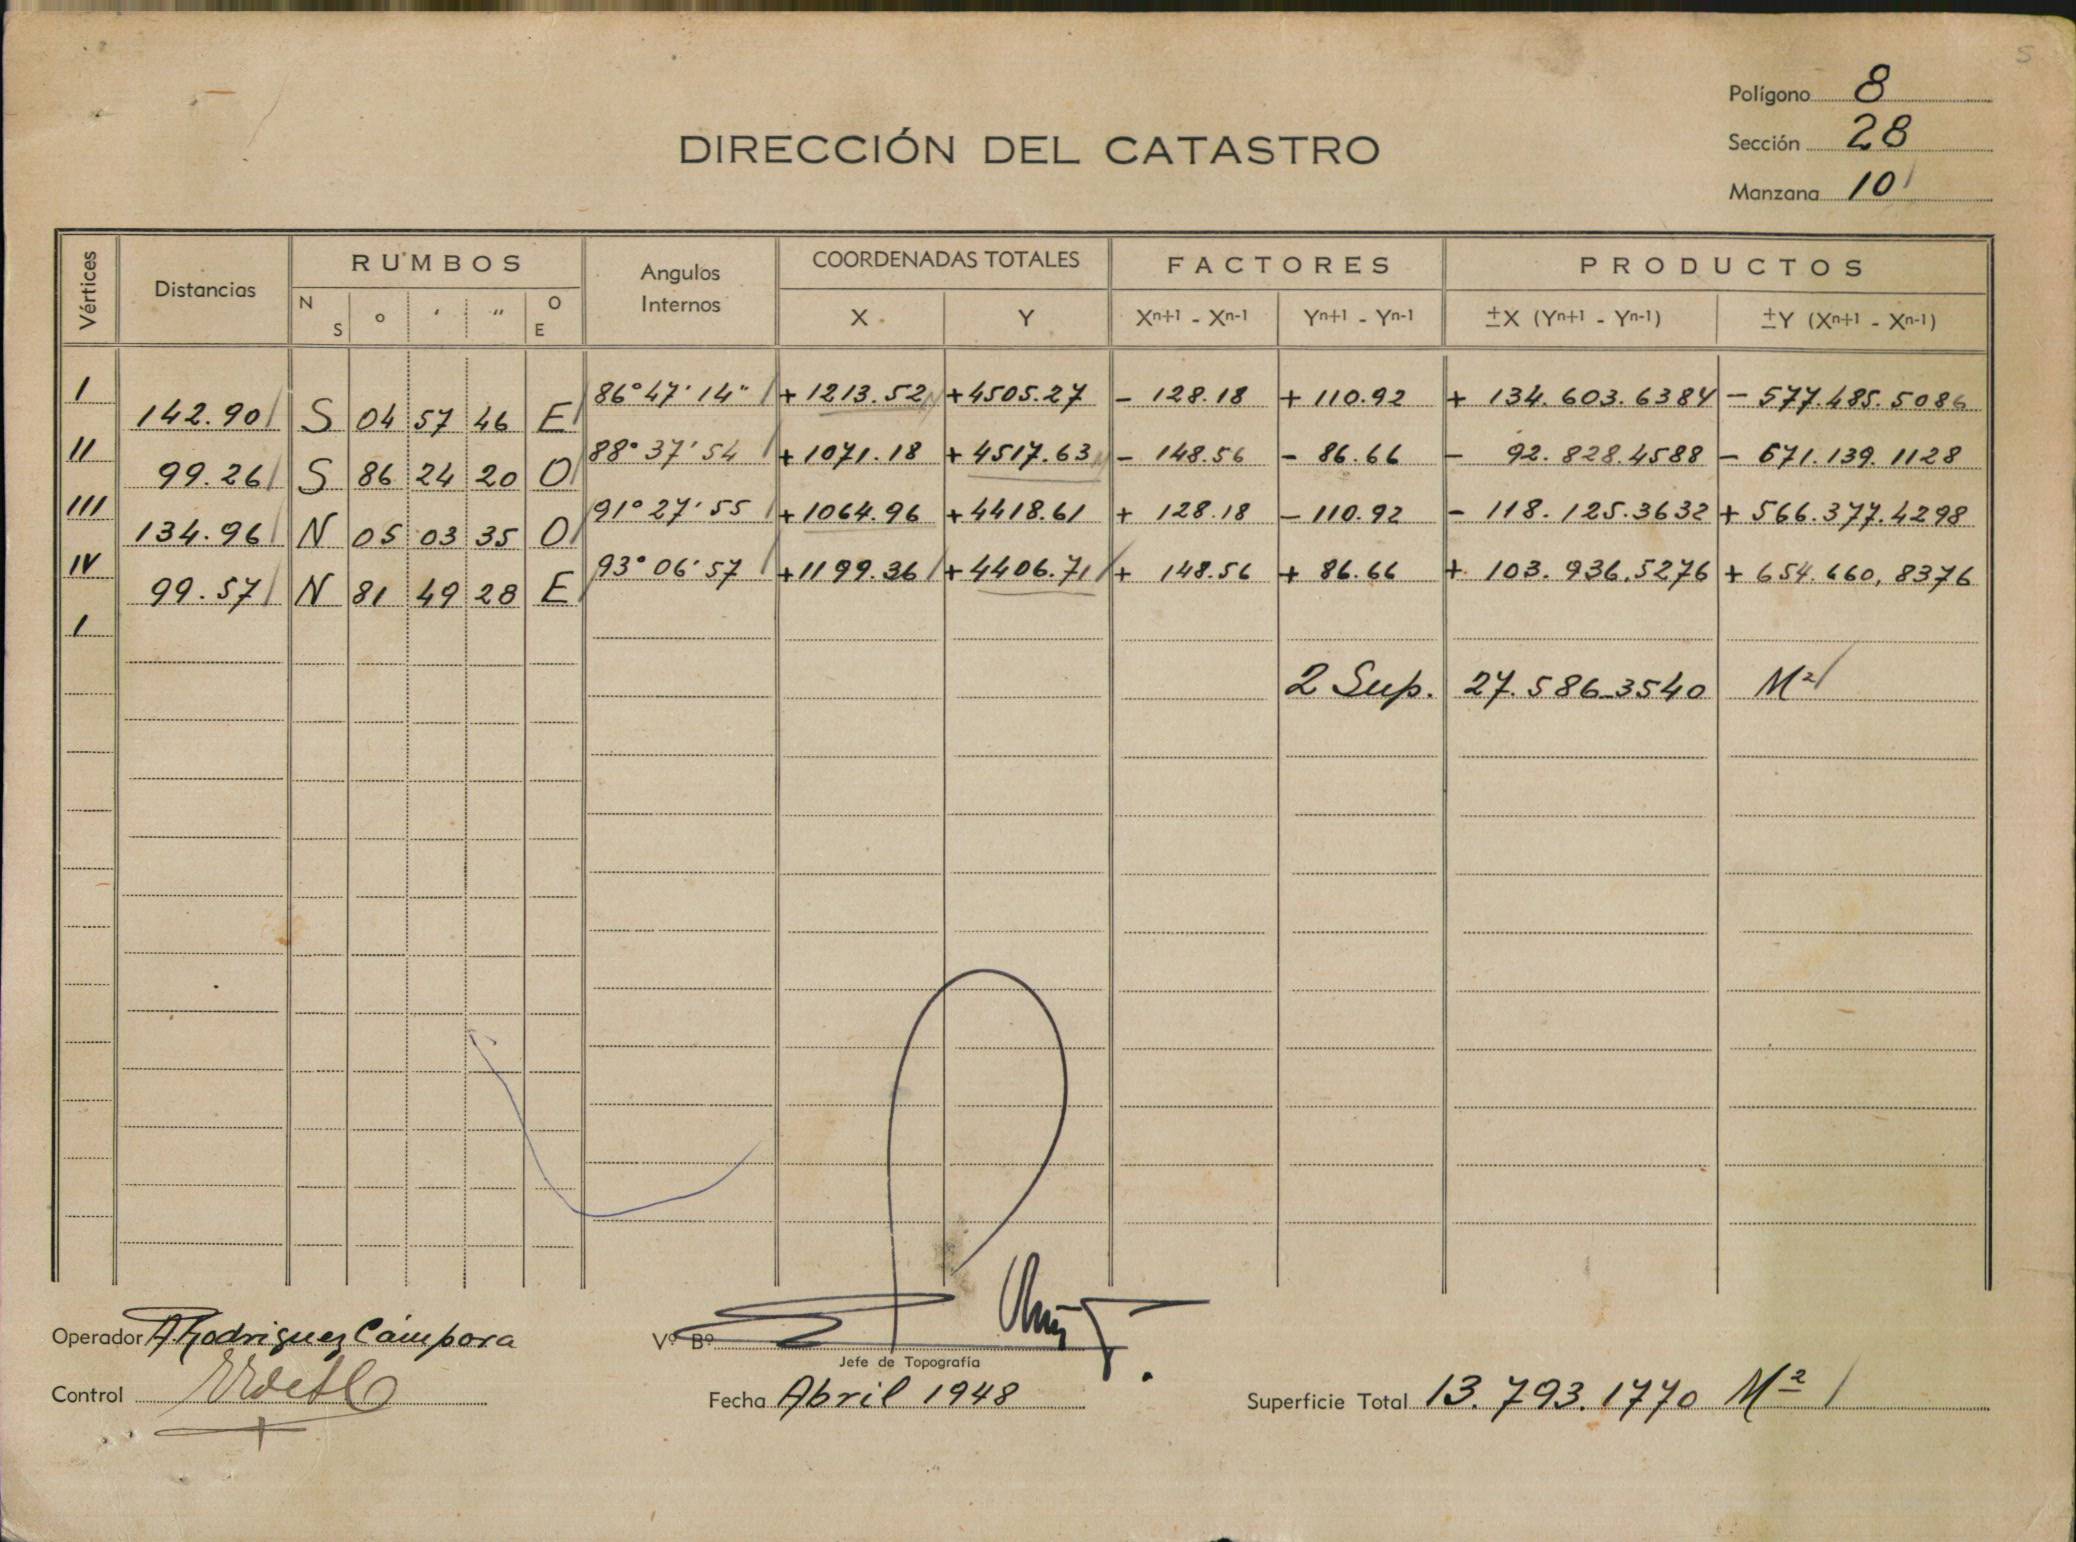 5
Polígono 8
Sección 28
Manzana 10
DIRECCIÓN DEL CATASTRO
Vértices Distancias RUMBOS Angulos Internos COORDENADAS TOTALES FACTORES PRODUCTOS
N S o ' " O E X Y Xn+1 - Xn-1 Yn+1 - Yn-1 ±X (Yn+1 - Yn-1) ±Y (Xn+1 - Xn-1)
I 86° 47' 14" +1213.52 +4505.27 - 128.18 + 110.92 + 134.603.6384 - 577.485.5086
142.90 S 04 57 46 E
II 88° 37' 54 +1071.18 +4517.63 - 148.56 - 86.66 - 92.828.4588 - 671.139.1128
99.26 S 86 24 20 O
III 91° 27' 55 +1064.96 +4418.61 + 128.18 - 110.92 - 118.125.3632 + 566.377.4298
134.96 N 05 03 35 O
IV 93° 06' 57 +1199.36 +4406.71 + 148.56 + 86.66 + 103.936.5276 + 654.660,8376
99.57 N 81 49 28 E
I
2 Sup. 27.586.3540 M²
Operador A Rodriguez Cámpora
Vº Bº
Jefe de Topografía
Control
Fecha Abril 1948
Superficie Total 13.793.1770 M²